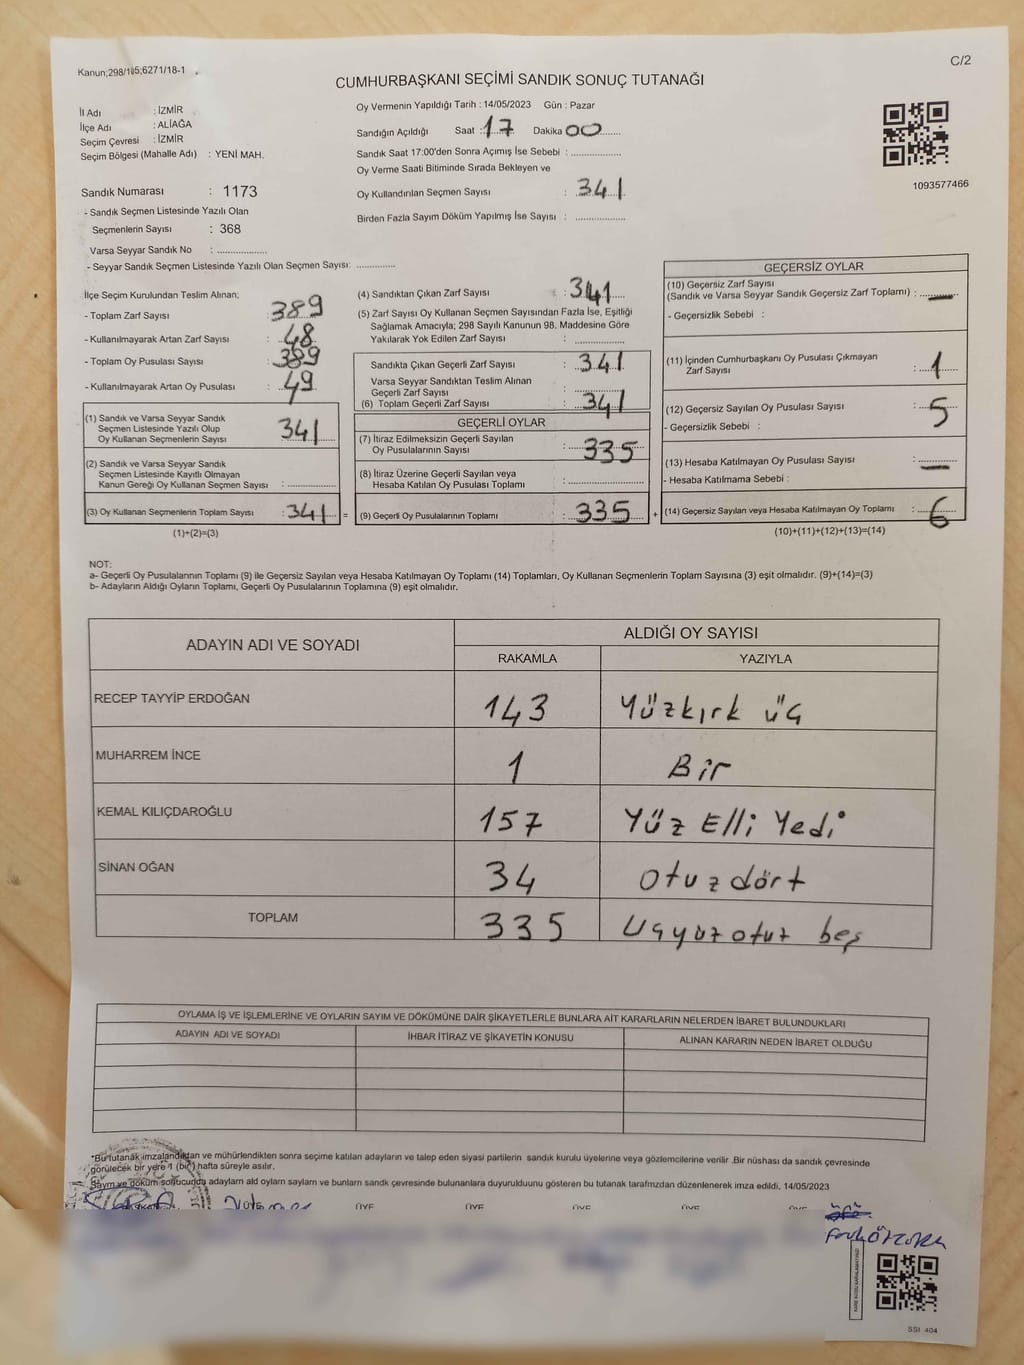 Kanun;298/105;6271/18-1
C/2
CUMHURBAŞKANI SEÇİMİ SANDIK SONUÇ TUTANAĞI
İl Adı : İZMİR
İlçe Adı : ALİAĞA
Seçim Çevresi : İZMİR
Seçim Bölgesi (Mahalle Adı) : YENİ MAH.
Sandık Numarası : 1173
- Sandık Seçmen Listesinde Yazılı Olan
Seçmenlerin Sayısı : 368
Varsa Seyyar Sandık No : ..................
- Seyyar Sandık Seçmen Listesinde Yazılı Olan Seçmen Sayısı: .............
Oy Vermenin Yapıldığı Tarih : 14/05/2023 Gün : Pazar
Sandığın Açıldığı Saat : 17 Dakika 00
Sandık Saat 17:00'den Sonra Açımış İse Sebebi : ..................
Oy Verme Saati Bitiminde Sırada Bekleyen ve
Oy Kullandırılan Seçmen Sayısı : 341
Birden Fazla Sayım Döküm Yapılmış İse Sayısı : ..................
1093577466
İlçe Seçim Kurulundan Teslim Alınan;
- Toplam Zarf Sayısı : 389
- Kullanılmayarak Artan Zarf Sayısı : 48
- Toplam Oy Pusulası Sayısı : 389
- Kullanılmayarak Artan Oy Pusulası : 49
(1) Sandık ve Varsa Seyyar Sandık
Seçmen Listesinde Yazılı Olup
Oy Kullanan Seçmenlerin Sayısı : 341
(2) Sandık ve Varsa Seyyar Sandık
Seçmen Listesinde Kayıtlı Olmayan
Kanun Gereği Oy Kullanan Seçmen Sayısı : ..................
(3) Oy Kullanan Seçmenlerin Toplam Sayısı : 341 =
(1)+(2)=(3)
(4) Sandıktan Çıkan Zarf Sayısı : 341
(5) Zarf Sayısı Oy Kullanan Seçmen Sayısından Fazla İse, Eşitliği
Sağlamak Amacıyla; 298 Sayılı Kanunun 98. Maddesine Göre
Yakılarak Yok Edilen Zarf Sayısı : ..................
Sandıkta Çıkan Geçerli Zarf Sayısı : 341
Varsa Seyyar Sandıktan Teslim Alınan
Geçerli Zarf Sayısı : ..................
(6) Toplam Geçerli Zarf Sayısı : 341
GEÇERLİ OYLAR
(7) İtiraz Edilmeksizin Geçerli Sayılan
Oy Pusulalarının Sayısı : 335
(8) İtiraz Üzerine Geçerli Sayılan veya
Hesaba Katılan Oy Pusulaları Toplamı : ..................
(9) Geçerli Oy Pusulalarının Toplamı : 335 +
GEÇERSİZ OYLAR
(10) Geçersiz Zarf Sayısı
(Sandık ve Varsa Seyyar Sandık Geçersiz Zarf Toplamı) : —
- Geçersizlik Sebebi :
(11) İçinden Cumhurbaşkanı Oy Pusulası Çıkmayan
Zarf Sayısı : 1
(12) Geçersiz Sayılan Oy Pusulası Sayısı : 5
- Geçersizlik Sebebi :
(13) Hesaba Katılmayan Oy Pusulası Sayısı : —
- Hesaba Katılmama Sebebi :
(14) Geçersiz Sayılan veya Hesaba Katılmayan Oy Toplamı : 6
(10)+(11)+(12)+(13)=(14)
NOT:
a- Geçerli Oy Pusulalarının Toplamı (9) ile Geçersiz Sayılan veya Hesaba Katılmayan Oy Toplamı (14) Toplamları, Oy Kullanan Seçmenlerin Toplam Sayısına (3) eşit olmalıdır. (9)+(14)=(3)
b- Adayların Aldığı Oyların Toplamı, Geçerli Oy Pusulalarının Toplamına (9) eşit olmalıdır.
ADAYIN ADI VE SOYADI
ALDIĞI OY SAYISI
RAKAMLA YAZIYLA
RECEP TAYYİP ERDOĞAN 143 Yüzkırk üç
MUHARREM İNCE 1 Bir
KEMAL KILIÇDAROĞLU 157 Yüz Elli Yedi
SİNAN OĞAN 34 otuz dört
TOPLAM 335 Uçyüzotuz beş
OYLAMA İŞ VE İŞLEMLERİNE VE OYLARIN SAYIM VE DÖKÜMÜNE DAİR ŞİKAYETLERLE BUNLARA AİT KARARLARIN NELERDEN İBARET BULUNDUKLARI
ADAYIN ADI VE SOYADI İHBAR İTİRAZ VE ŞİKAYETİN KONUSU ALINAN KARARIN NEDEN İBARET OLDUĞU
*Bu tutanak imzalandıktan ve mühürlendikten sonra seçime katılan adayların ve talep eden siyasi partilerin sandık kurulu üyelerine veya gözlemcilerine verilir .Bir nüshası da sandık çevresinde
görülecek bir yere 1 (bir) hafta süreyle asılır.
Sayım ve döküm sonucunda adayların ald oyların sayların ve bunların sandık çevresinde bulunanlara duyurulduunu gösteren bu tutanak tarafımzdan düzenlenerek imza edildi. 14/05/2023
ÜYE ÜYE ÜYE ÜYE
SSI 404